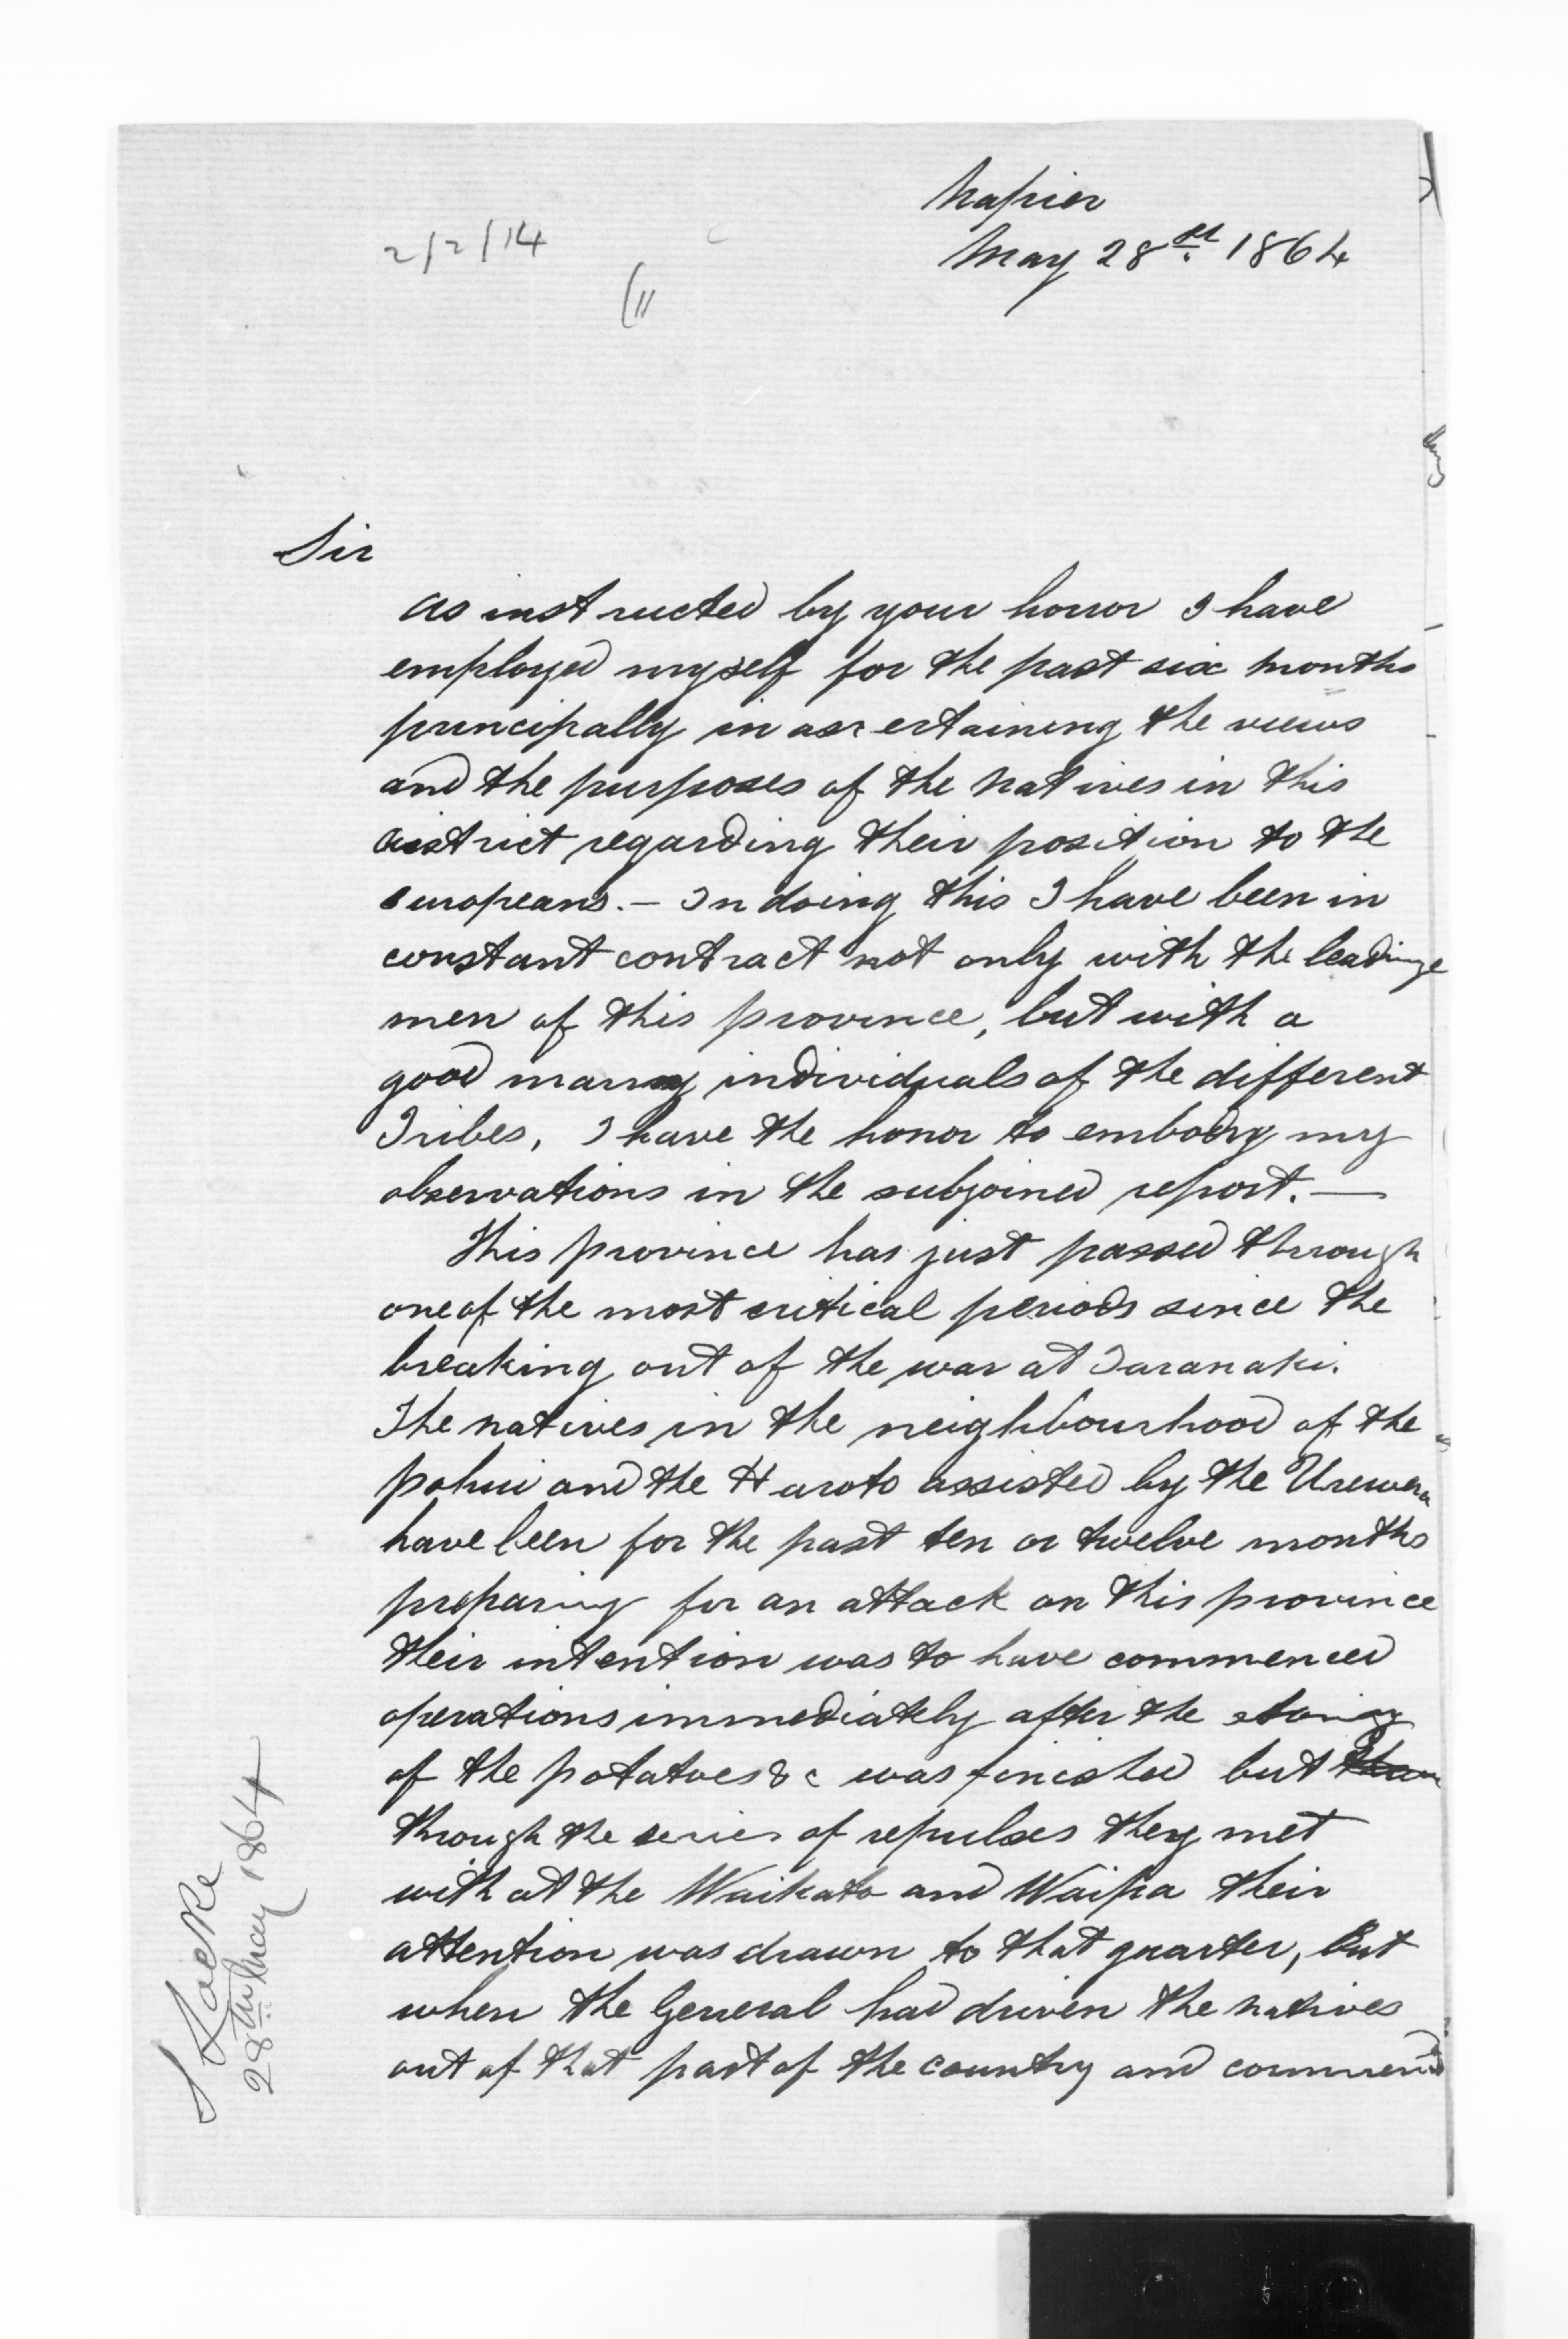 Napier
May 28th 1864
2/2/14
(11
Sir
as instructed by your honor I have
employed myself for the past six months
principally in ascertaining the views
and the purposes of the natives in this
district regarding their position to the
europeans. — In doing this I have been in
constant contract not only with the leading
men of this province, but with a
good many individuals of the different
Tribes, I have the honor to embody my
observations in the subjoined report. —
This province has just passed through
one of the most critical periods since the
breaking out of the war at Taranaki.
The natives in the neighbourhood of the
pohui and the Haroto assisted by the Urewera
have been for the past ten or twelve months
preparing for an attack on this province
their intention was to have commenced
operations immediately after the storing
of the potatoes &c was finished but
through the series of repulses they met
with at the Waikato and Waipa their
attention was drawn to that quarter, But
when the General had driven the natives
out of that part of the country and commenced
S Locke
28th May 1864